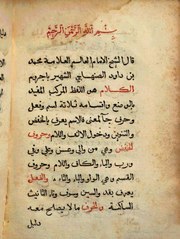 بسم الله الرحمن الرحيم
قال الشيخ الامام العالم العلامة محمد
بن داود الصنهاجي الشهير باجروم
الكلام هو اللفظ المركب المفيد
بالوضع واقسامه ثلاثة اسم وفعل
وحرف جاء لمعنى فالاسم يعرف بالخفض
والتنوين ودخول الالف واللام وحروف
الخفض وهي من والى وعن وعلى وفي
ورب والبا والكاف واللام وحروف
القسم وهي الواو والبا والتاء والفعل
يعرف بقد والسين وسوف وتاء التانيث
الساكنة والحرف ما لا يصلح معه
دليل